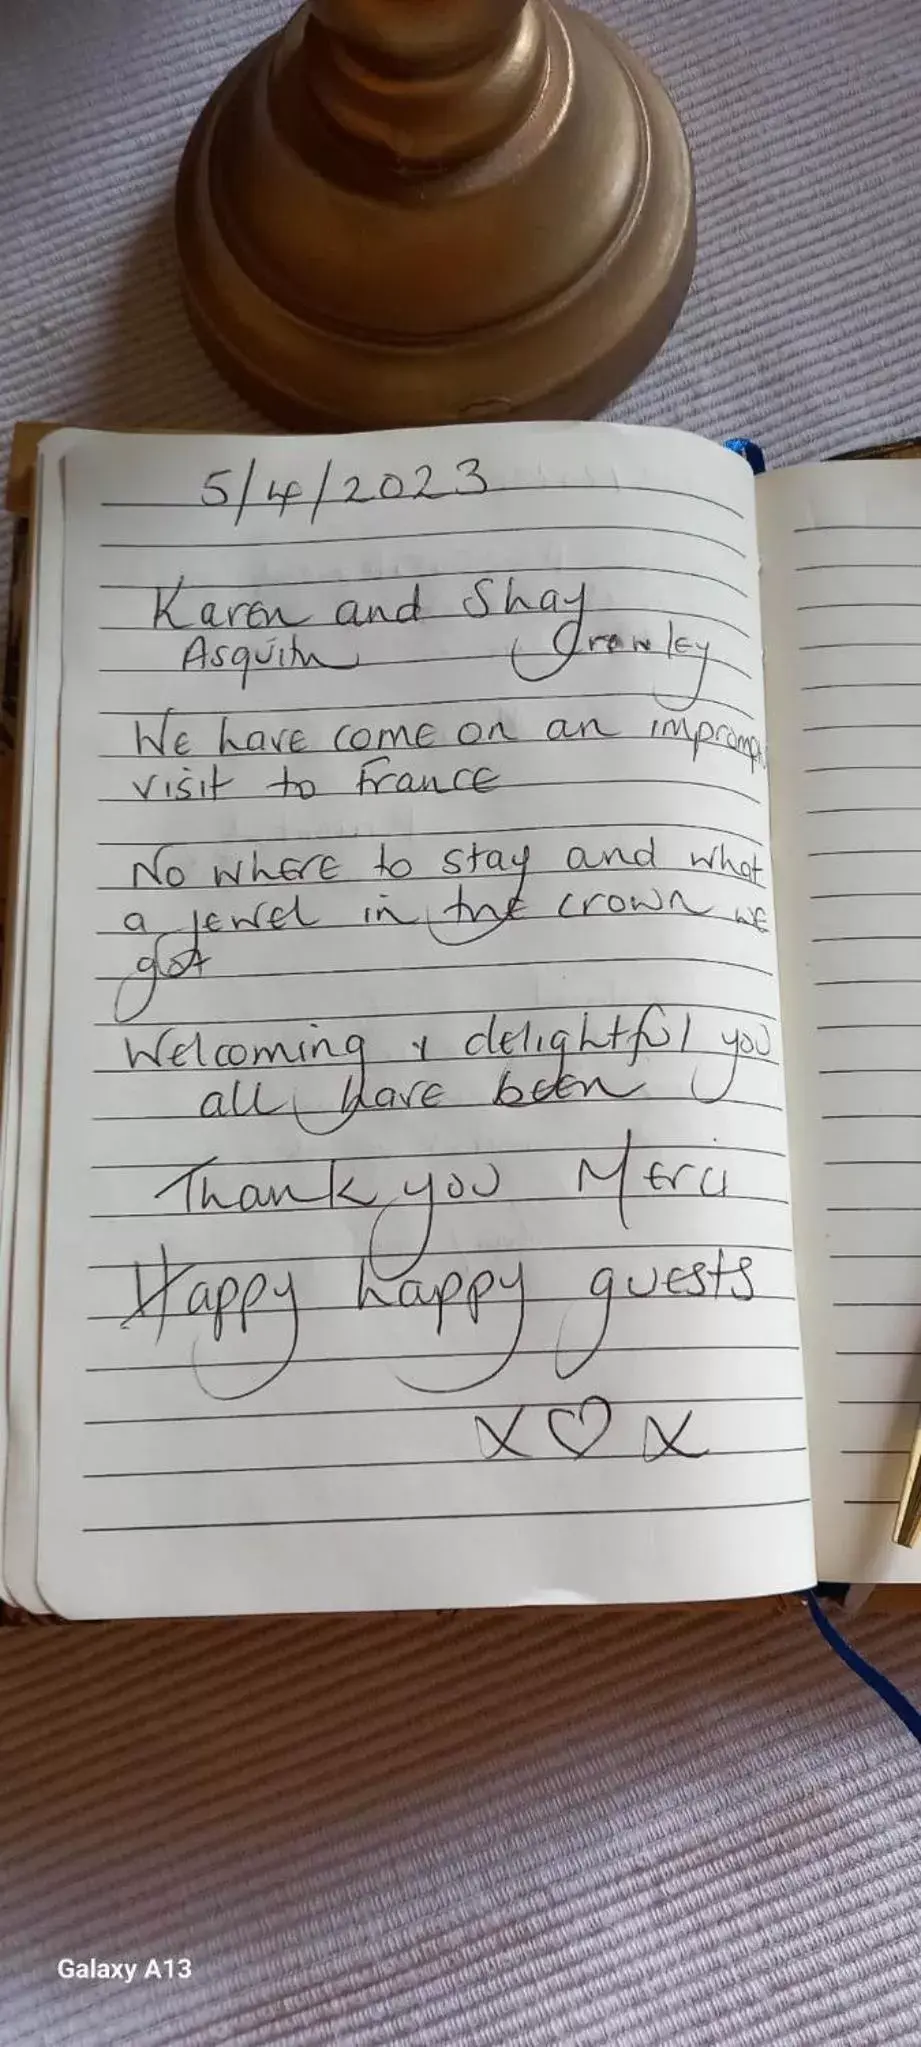 5/4/2023
Karen and Shay
Asquith
We have come on an
visit to France
No where to stay and what
a jewel in the crown we
got
Welcoming & delightful you
all have been
Thank you Merci
Happy happy guests
x♡x
Galaxy A13